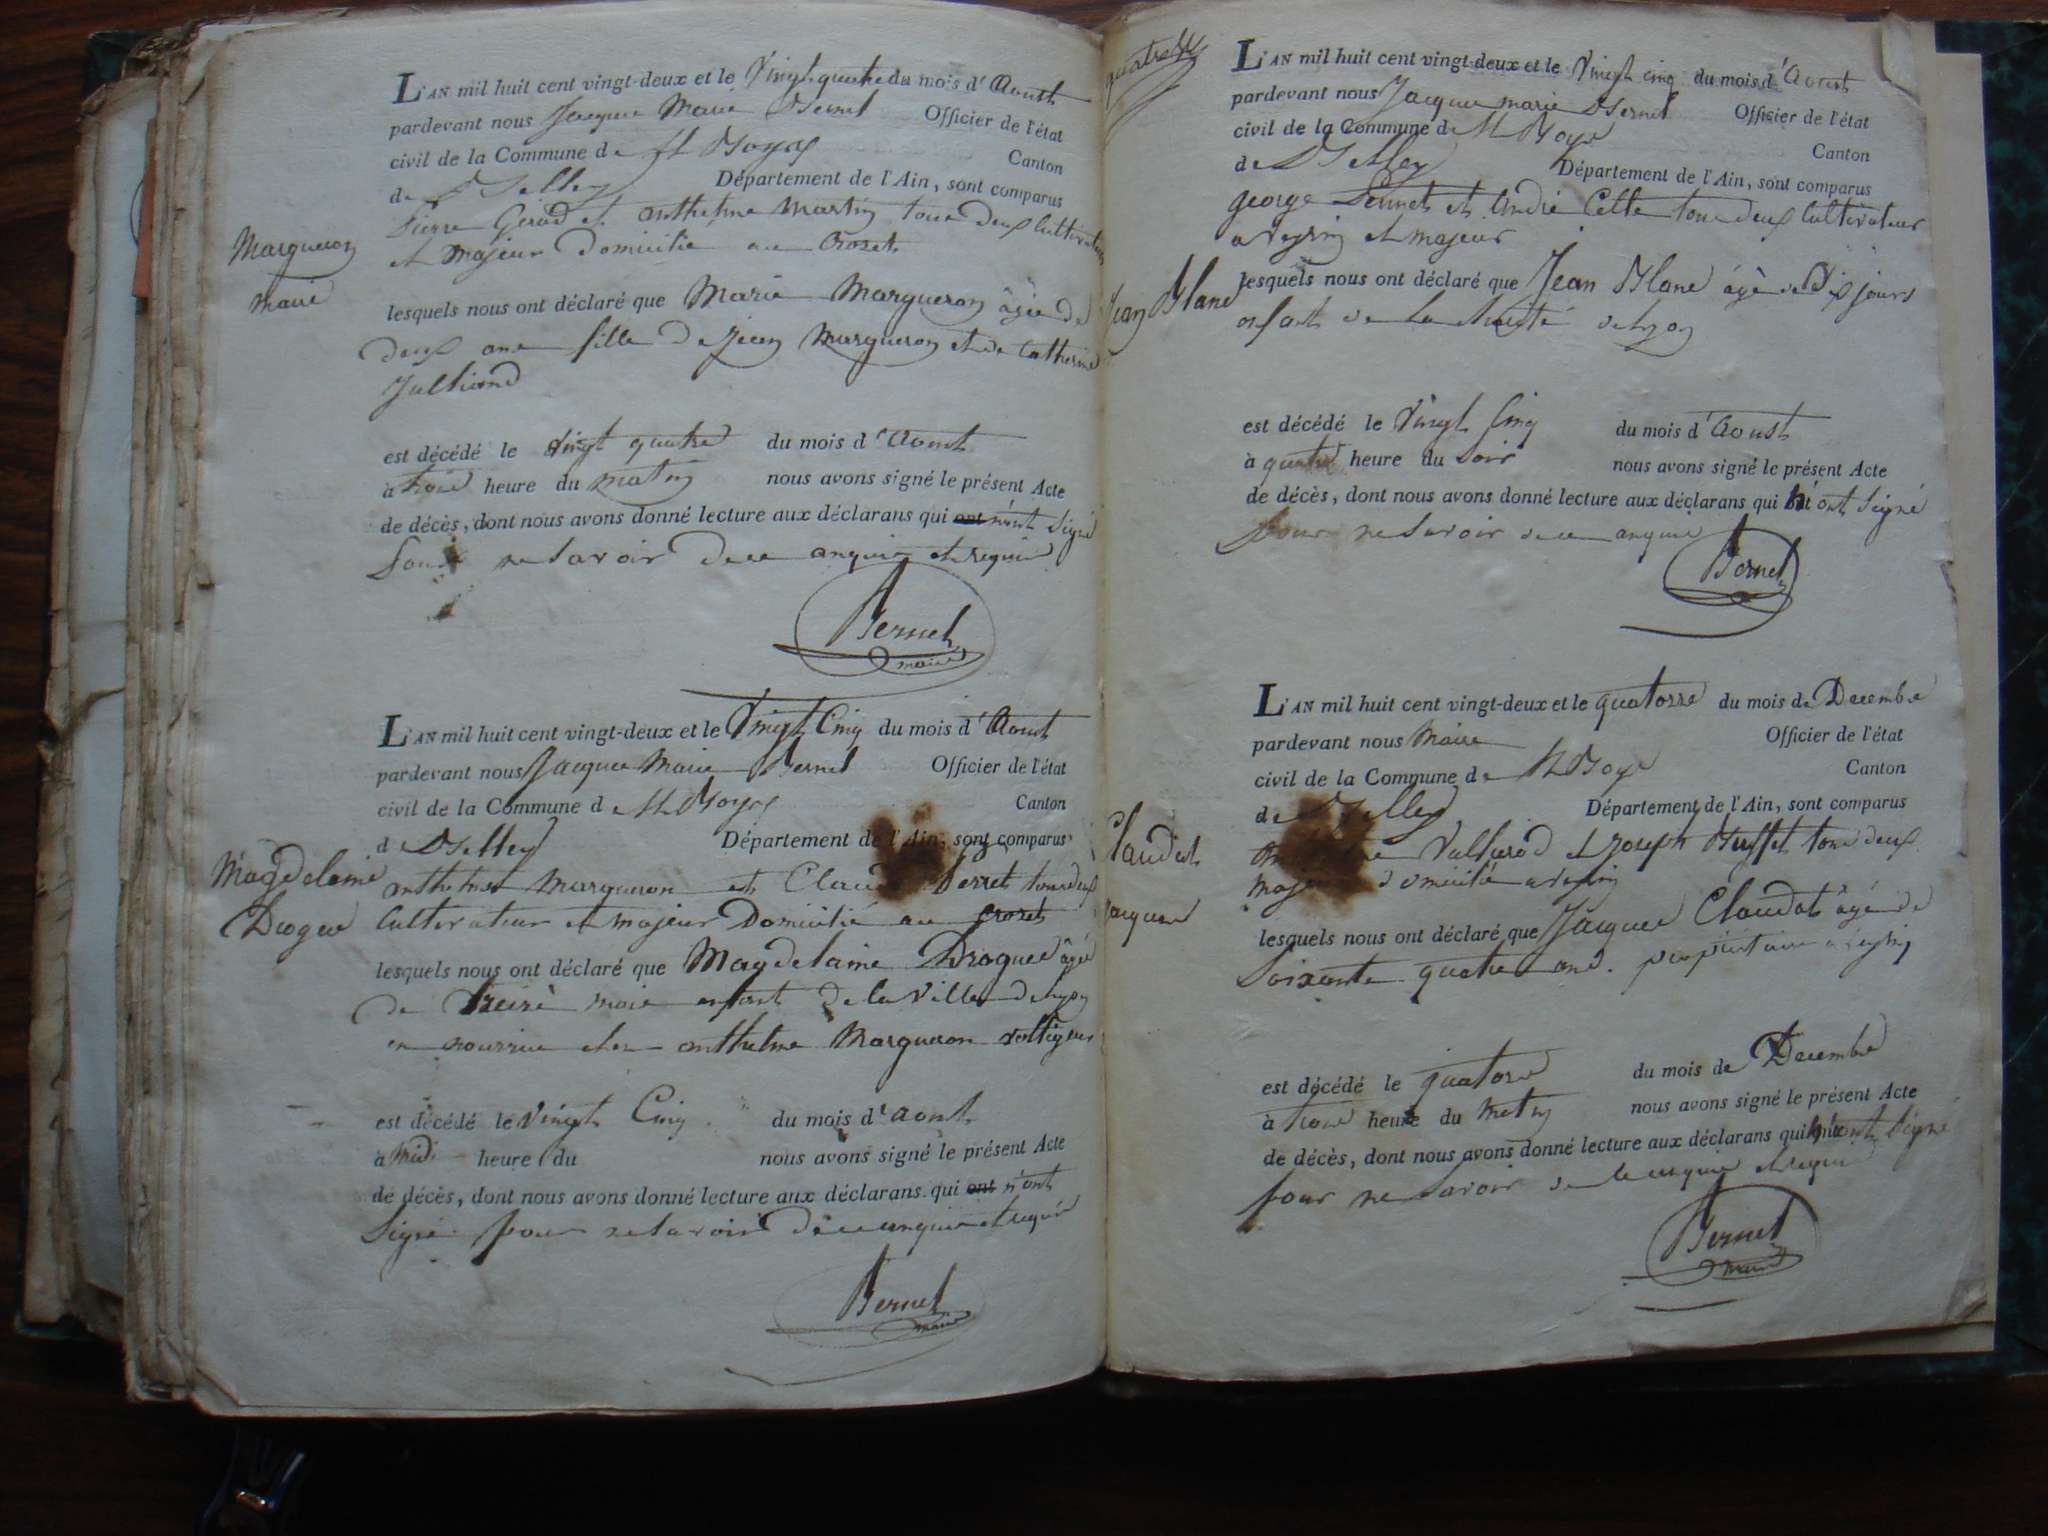 Margueron
marie
L'AN mil huit cent vingt-deux et le Vingt quatre du mois d'Aoust
pardevant nous Jacque Marie Bernet Officier de l'état
civil de la Commune de St Boys Canton
de Belley Département de l'Ain, sont comparus
Pierre Girod et anthelme Martin tous deux Cultivateur
et majeur domicilié au Crozet
lesquels nous ont déclaré que Marie Margueron âgée de
deux ans fille de jean Margueron et de Catherine
Julliand
est décédé le vingt quatre du mois d'Aoust
à trois heure du matin nous avons signé le présent Acte
de décès, dont nous avons donné lecture aux déclarans qui ont n'ont signé
pour ne savoir de ce enquis et requis
Bernet
maire
Magdelaine
Drogue
L'AN mil huit cent vingt-deux et le Vingt Cinq du mois d'Aoust
pardevant nous Jacque Marie Bernet Officier de l'état
civil de la Commune de St Boys Canton
d Belley Département de l'Ain, sont comparus
anthelme Margueron et Claude Perret tous deux
Cultivateur et majeur Domicilié au Crozet
lesquels nous ont déclaré que Magdelaine Drogue âgé
de treize mois enfant de la Ville de lyon
en nourrice chez anthelme Margueron voltigeur
est décédé le Vingt Cinq du mois d'aout
à Midi heure du nous avons signé le présent Acte
de décès, dont nous avons donné lecture aux déclarans qui ont n'ont
signé pour ne savoir de ce enquis et requis
Bernet
maire
Jean Blanc
L'AN mil huit cent vingt-deux et le Vingt cinq du mois d'Aoust
pardevant nous Jacque marie Bernet Officier de l'état
civil de la Commune de St Boys Canton
de Belley Département de l'Ain, sont comparus
george et andré Cette tous deux Cultivateur
a veyrin et majeur
lesquels nous ont déclaré que Jean Blanc âgé de Dix jours
enfant de la charité de lyon
est décédé le Vingt Cinq du mois d'Aoust
à quatre heure du Soir nous avons signé le présent Acte
de décès, dont nous avons donné lecture aux déclarans qui n'ont signé
pour ne savoir de ce enquis
Bernet
Claudet
Jacque
L'AN mil huit cent vingt-deux et le quatorze du mois de Decembre
pardevant nous Maire Officier de l'état
civil de la Commune de St Boys Canton
de Belley Département de l'Ain, sont comparus
Vallierod et joseph tous deux
majeur domicilié a veyrin
lesquels nous ont déclaré que Jacque Claudet âgé de
Soixante quatre ans. propriétaire a veyrin
est décédé le quatorze du mois de Decembre
à trois heure du Matin nous avons signé le présent Acte
de décès, dont nous avons donné lecture aux déclarans qui n'ont signé
pour ne savoir de ce enquis et requis
Bernet
maire